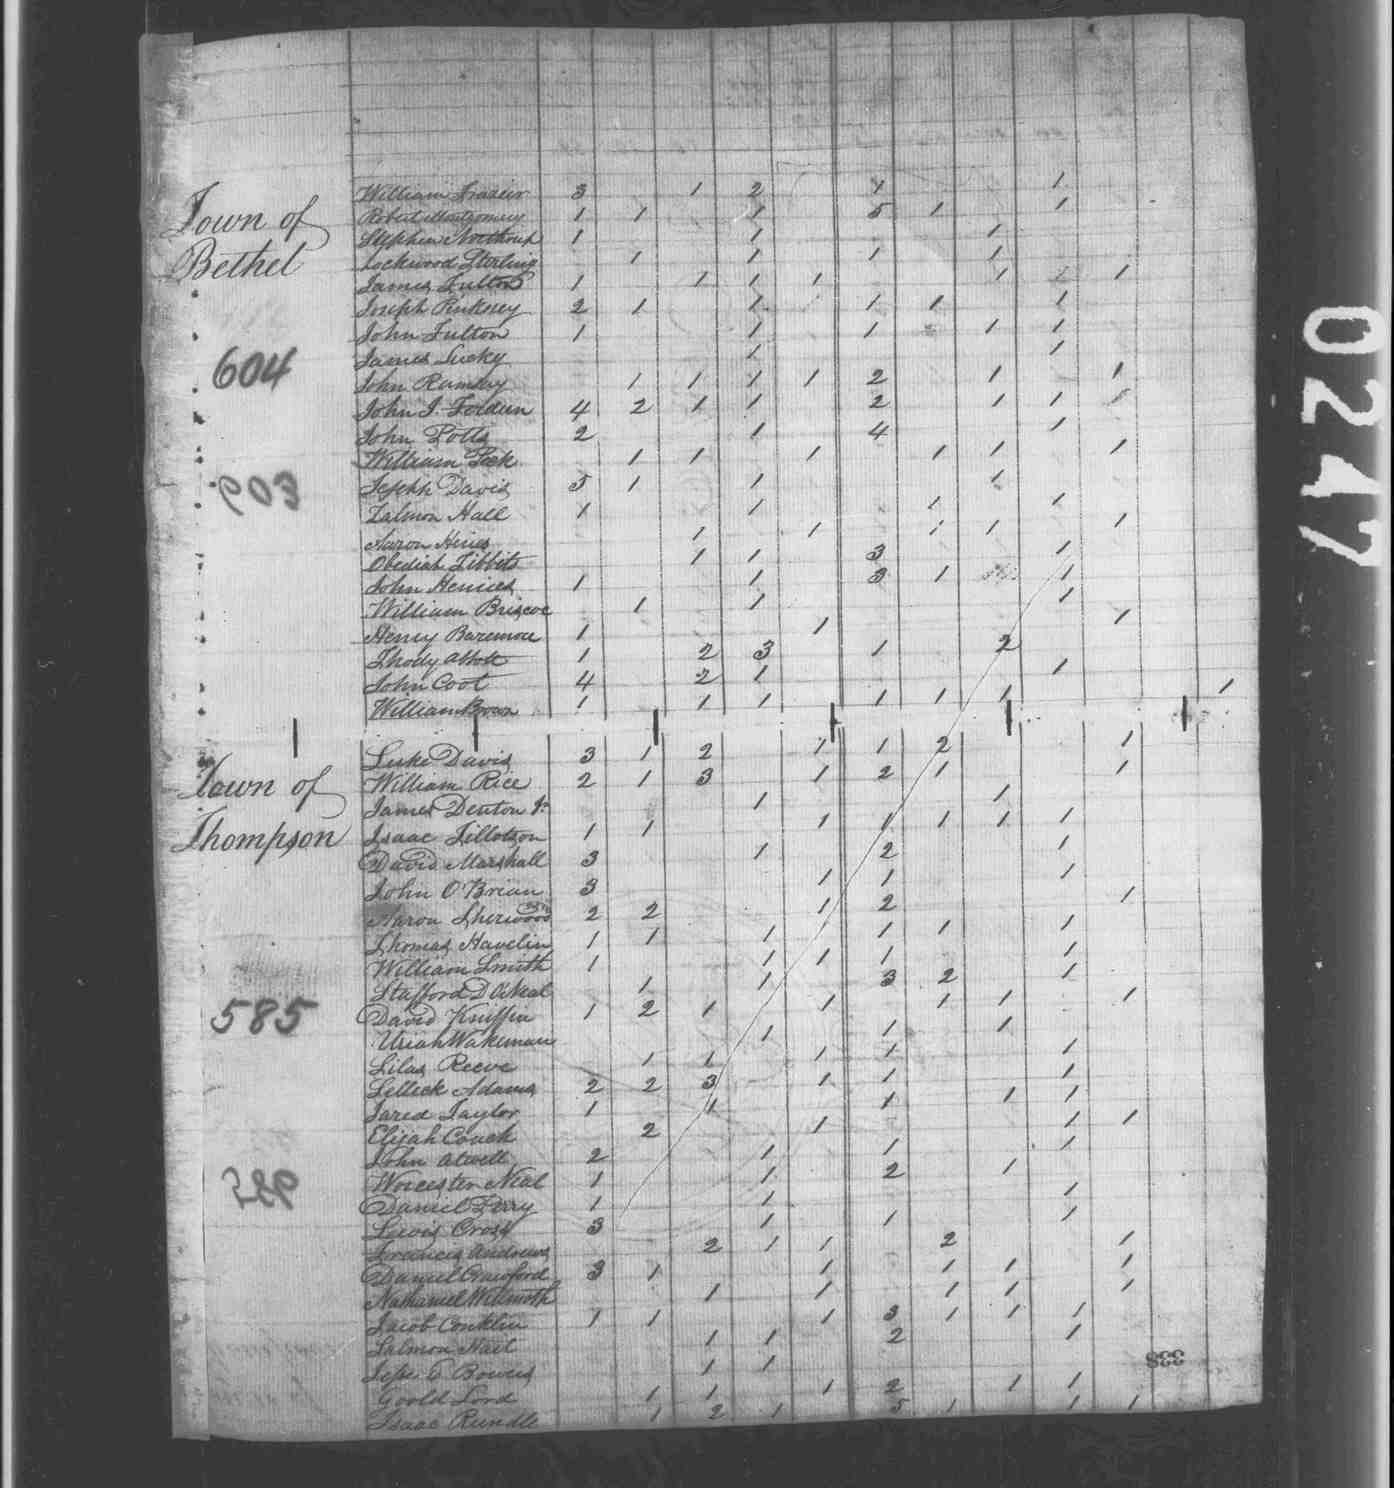 Town of
Bethel
604
603
William Frazier 3 1 2 1 1
Robert Montgomery 1 1 1 5 1 1
Stephen Northrup 1 1 1
Lockwood Sterling 1 1 1 1
James Fulton 1 1 1 1 1 1
Joseph Pinkney 2 1 1 1 1 1
John Fulton 1 1 1 1 1
James Lucky 1 1
John Rumsey 1 1 1 1 2 1 1
John J. 4 2 1 1 2 1 1
John Potts 2 1 4 1
William Peck 1 1 1 1 1 1
Joseph Davis 5 1 1 1
Zalmon Hall 1 1 1 1
Aaron Hines 1 1 1 1 1
Obediah Tibbits 1 1 3 1
John 1 1 3 1 1
William Briscoe 1 1 1
Henry Baremore 1 1 1
Abbott 1 2 3 1 2
John Coot 4 2 1 1
William Brown 1 1 1 1 1 1 1
Town of
Thompson
585
586
Luke Davis 3 1 2 1 1 2 1
William Rice 2 1 3 1 2 1 1
James Denton Jr 1 1
Isaac Tillotson 1 1 1 1 1 1 1
David Marshall 3 1 2 1
John O'Brian 3 1 1 1
Aaron Sherwood 2 2 1 2 1
Thomas Havelin 1 1 1 1 1 1
William Smith 1 1 1 1 1
Stafford D ONeal 1 1 3 2 1
David Kniffin 1 2 1 1 1 1 1
Uriah Wakeman 1 1 1
Silas Reeve 1 1 1 1 1
Selleck Adams 2 2 3 1 1 1
Jared Taylor 1 1 1 1 1
Elijah Couch 2 1 1 1
John Atwell 2 1 1 1
Worcester Neal 1 1 2 1
Daniel Perry 1 1 1
Lewis Cross 3 1 1 1
Francis Andrews 2 1 1 2 1
Daniel Crawford 3 1 1 1 1 1
Nathaniel Wilmoth 1 1 1 1 1
Jacob Conklin 1 1 1 3 1 1 1
Salmon Hait 1 1 2 1
Jesse Bowers 1 1
Goold Lord 1 1 1 2 1 1
Isaac Rundle 1 2 1 5 1 1 1
338
0247